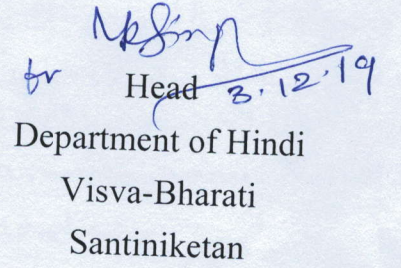 for Head 3.12.19
Department of Hindi
Visva-Bharati
Santiniketan